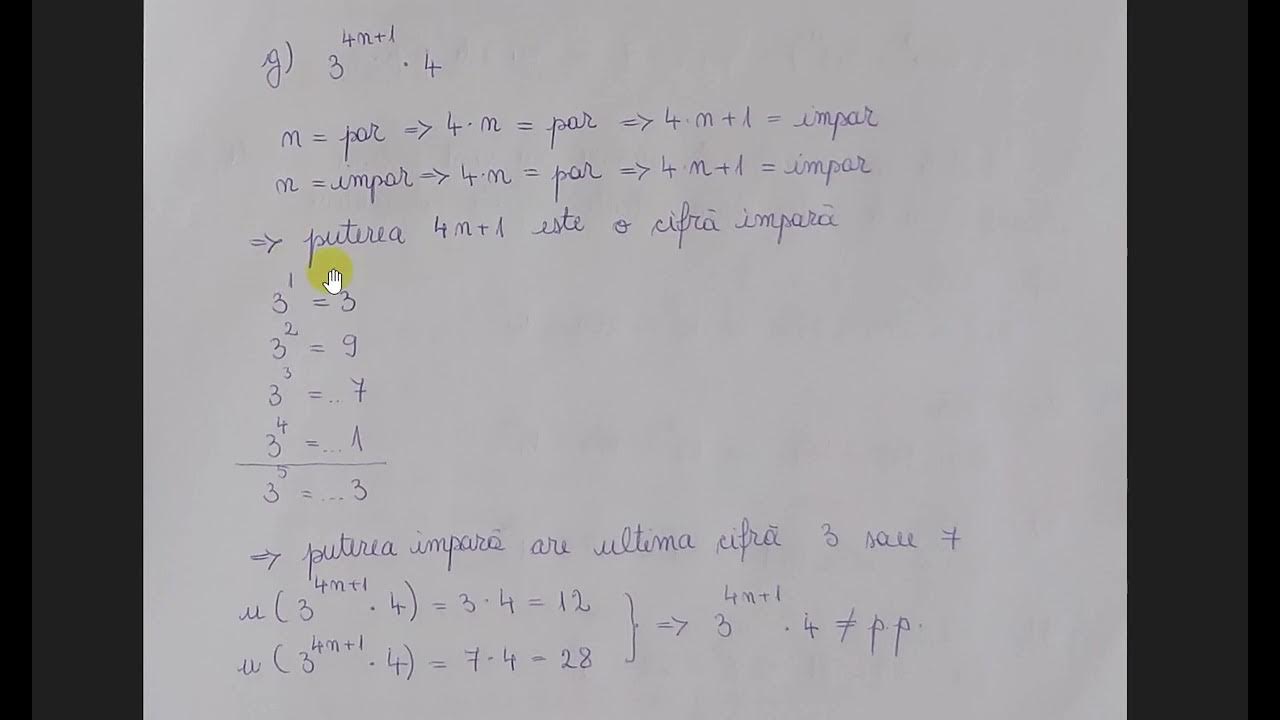 g) 3^{4n+1} · 4
n = par => 4·n = par => 4·n+1 = impar
n = impar => 4·n = par => 4·n+1 = impar
=> puterea 4n+1 este o cifră impară
3^1 = 3
3^2 = 9
3^3 = ..7
3^4 = ...1
3^5 = ...3
=> puterea impară are ultima cifră 3 sau 7
u(3^{4n+1} · 4) = 3·4 = 12
u(3^{4n+1} · 4) = 7·4 = 28
} => 3^{4n+1} · 4 ≠ p.p.